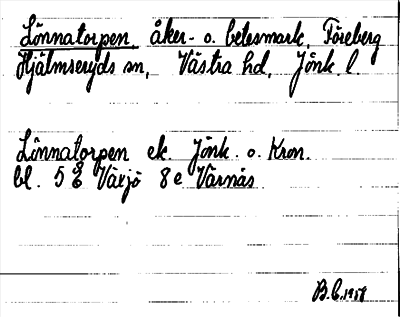 Lönnatorpen, åker- o. betesmark, Föreberg
Hjälmseryds sn, Västra hd, Jönk l.
Lönnatorpen ek. Jönk. o. Kron.
bl. 5 E Växjö 8 e Värnäs